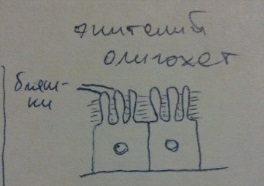 эпителий
олигохет
бляш-
ки